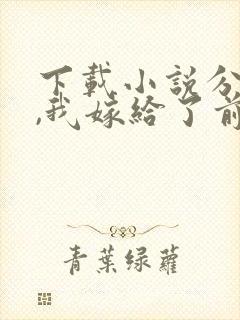 下載小說分
,我嫁給了前
青葉綠蘿